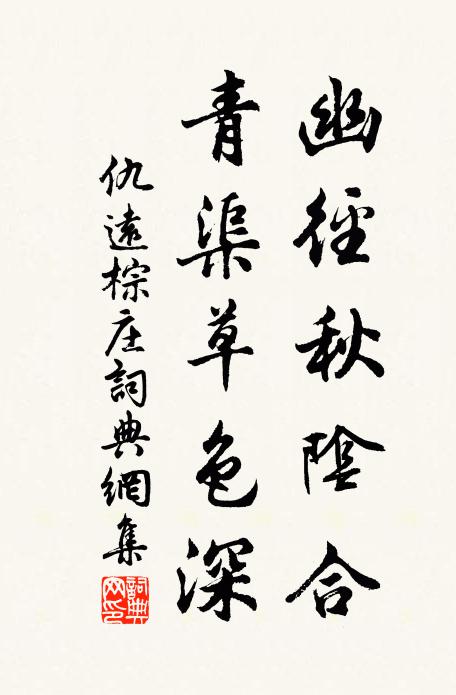 幽徑秋陰合
青渠草色深
仇遠棕庄詞典網集
詞典
网印